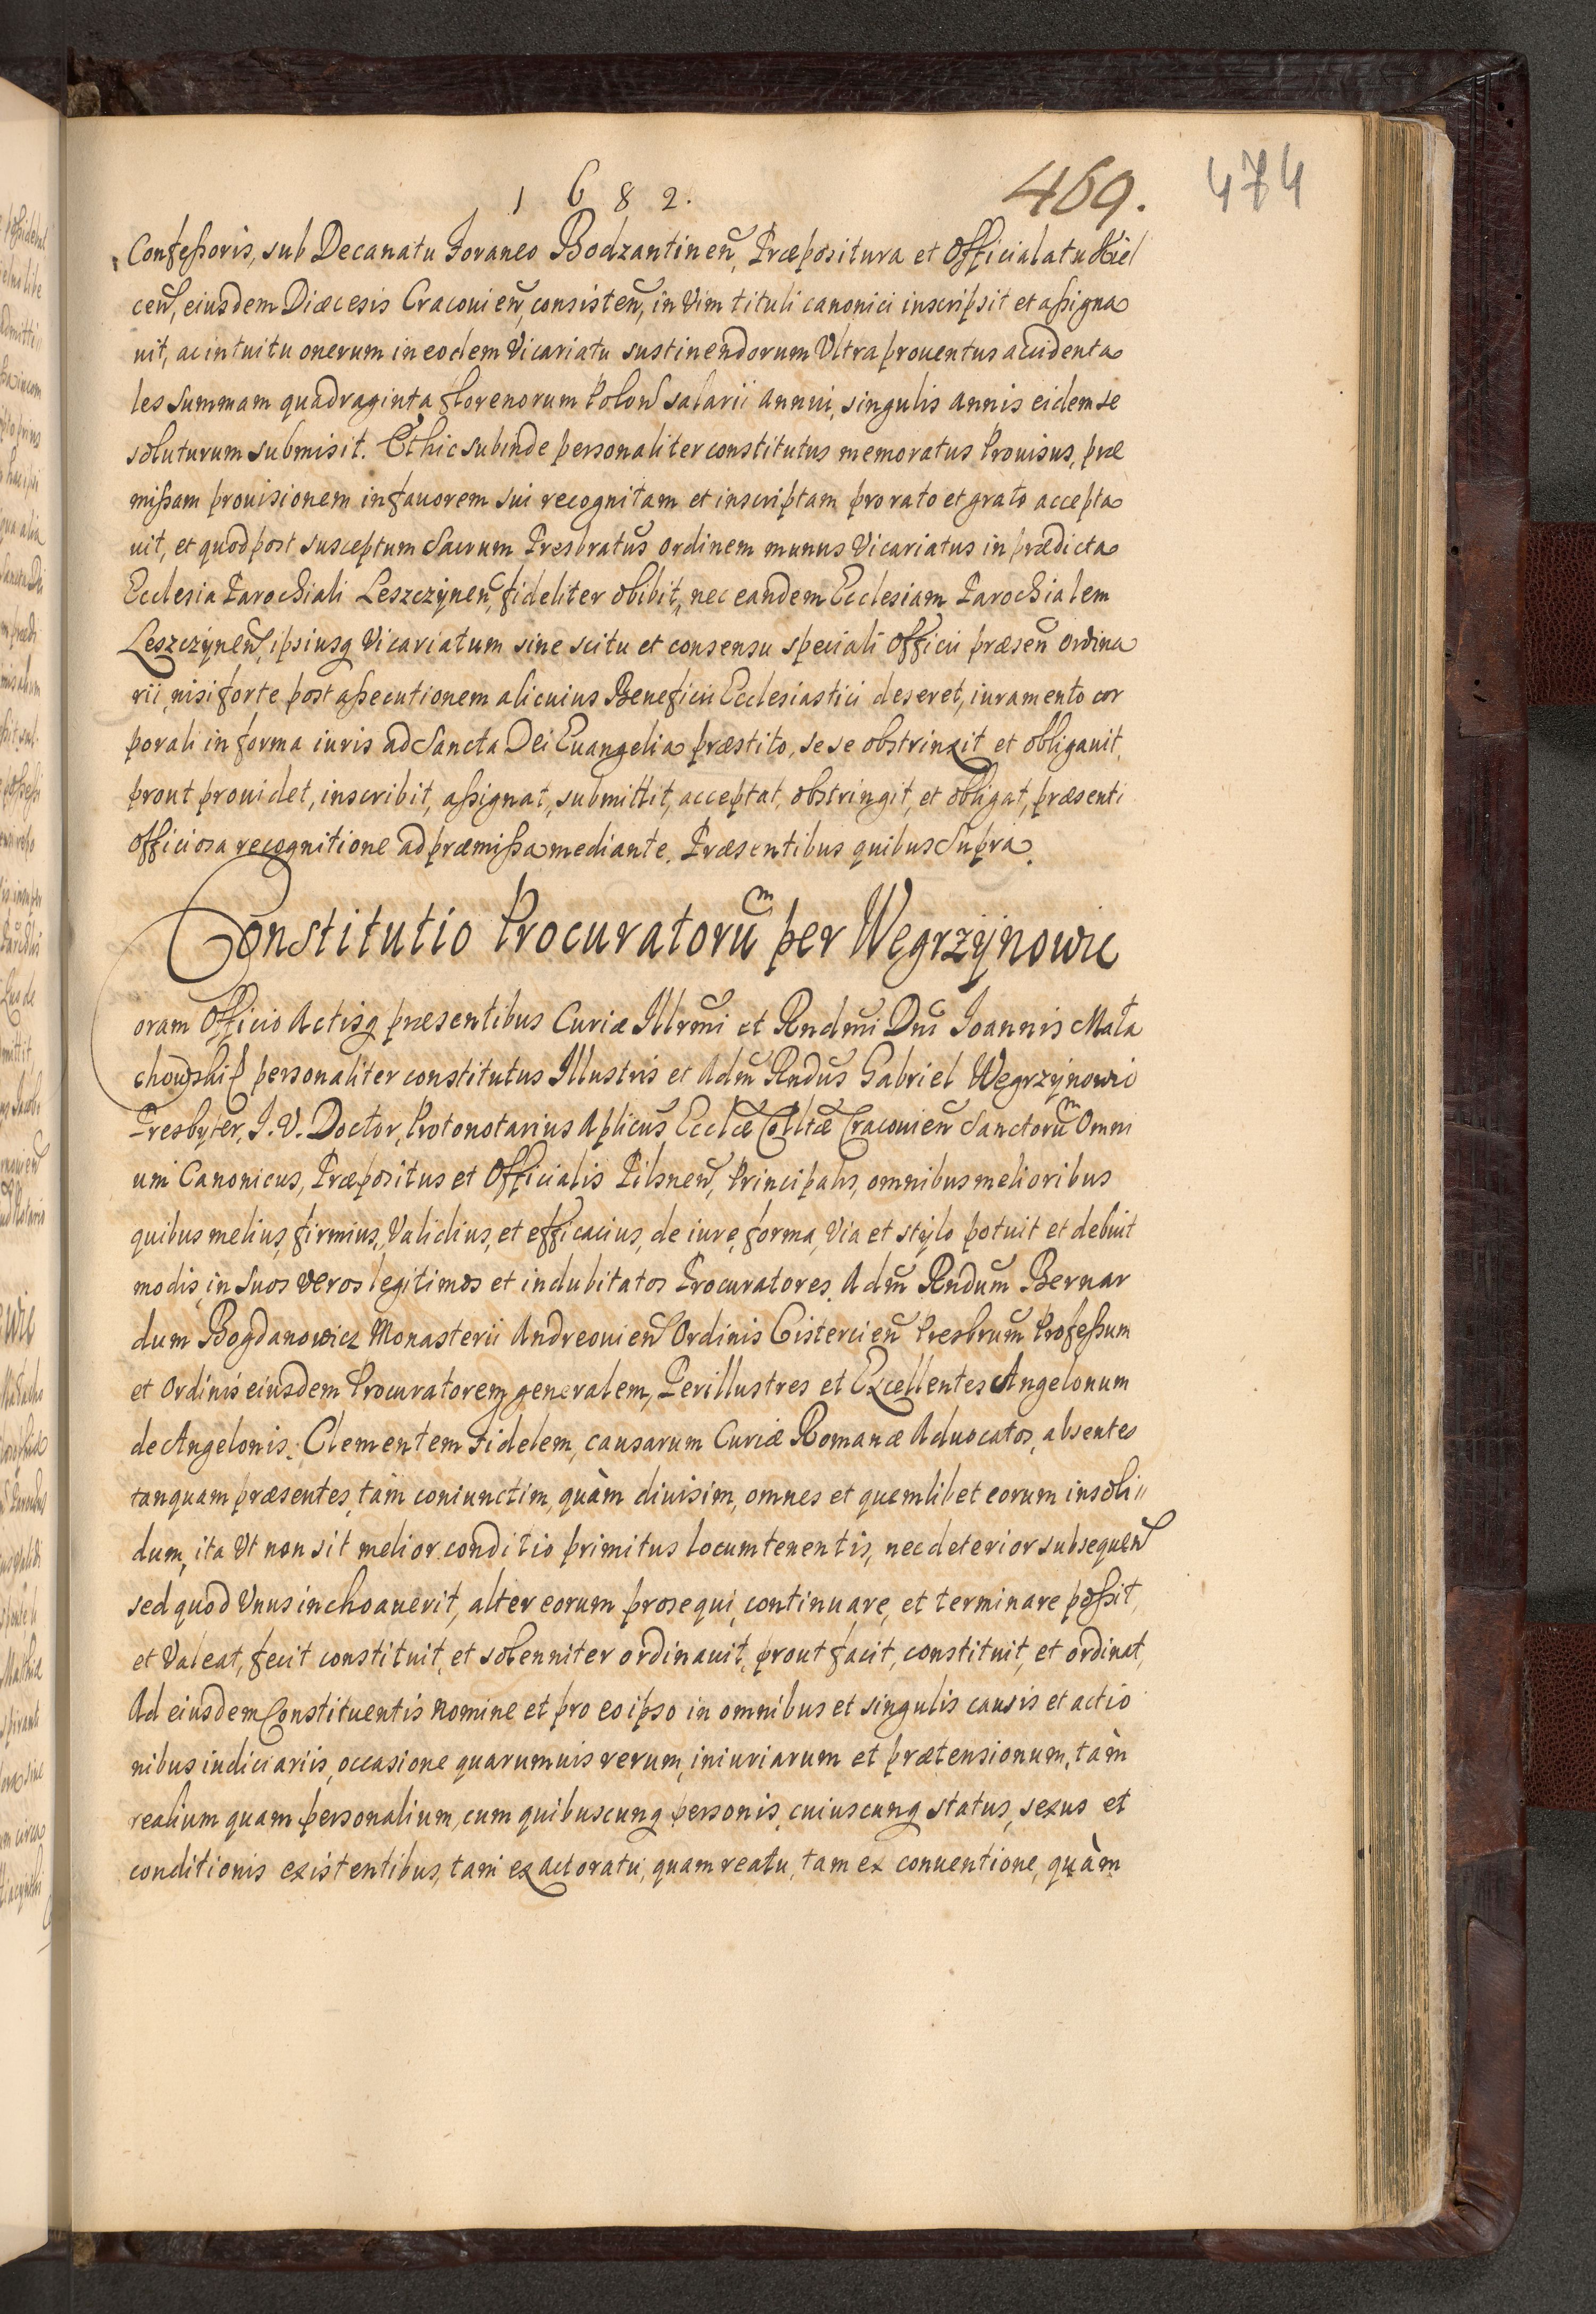 1 6 8 2.
469.
474
Confessoris, sub Decanatu Foraneo Bodzantinen, Præpositura et Officialatu Kiel
cen, eiusdem Diæcesis Cracouien, consisten, in Vim tituli canonici inscripsit et assigna
uit, ac intuitu onerum in eodem Vicariatu sustinendorum Vltra prouentus accidenta
les summam quadraginta florenorum Polon salarii annui, singulis annis eidem se
soluturum submisit. Et hic subinde personaliter constitutus memoratus Prouisus, præ
missam prouisionem in fauorem sui recognitam et inscriptam pro rato et grato accepta
uit, et quod post susceptum Sacrum Presbratus ordinem munus Vicariatus in prædicta
Ecclesia Parochiali Leszczÿnen, fideliter obibit, nec eandem Ecclesiam Parochialem
Leszczÿnen, ipsiusq Vicariatum sine scitu et consensu speciali Officii præsen ordina
rii, nisi forte post assecutionem alicuius Beneficii Ecclesiastici deseret, iuramento cor
porali in forma iuris ad Sancta Dei Euangelia præstito, sese obstrinxit et obligauit,
prout prouidet, inscribit, assignat, submittit, acceptat, obstringit, et obligat, præsenti
officiosa recognitione ad præmissa mediante. Præsentibus quibus Supra.
Constitutio Procuratorum per Wegrzÿnowic
oram Officio Actisq præsentibus Curiæ Illrmi et Rndmi Dni Ioannis Mała
chowski personaliter constitutus Illustris et Adm Rndus Gabriel Wegrzÿnowic
Presbyter, I. V. Doctor, Protonotarius Aplicus Ecclæ Colltæ Cracouien Sanctorum Omni
um Canonicus, Præpositus et Officialis Pilsnen, Principalis, omnibus melioribus
quibus melius, firmius, Validius, et efficacius, de iure, forma, Via et stÿlo potuit et debuit
modis, in Suos veros legitimos et indubitatos Procuratores, Adm Rndum Bernar
dum Bogdanowicz Monasterii Andreouien Ordinis Cistercien Presbrum Professum
et Ordinis eiusdem Procuratorem generalem, Perillustres et Excellentes Angelonum
de Angelonis, Clementem Fidelem, causarum Curiæ Romanæ Aduocatos, absentes
tanquam præsentes, tam coniunctim, quàm diuisim, omnes et quemlibet eorum insoli"
dum, ita Vt non sit melior conditio primitus locum tenentis, nec deterior subsequen
sed quod Vnus inchoauerit, alter eorum prosequi, continuare, et terminare possit,
et Valeat, fecit constituit, et solenniter ordinauit, prout facit, constituit, et ordinat,
Ad eiusdem Constituentis nomine et pro eo ipso in omnibus et singulis causis et actio
nibus iudiciariis, occasione quarumuis rerum, iniuriarum et prætensionum, tàm
realium quam personalium, cum quibuscunq personis, cuiuscunq status, sexus et
conditionis existentibus, tam ex actoratu, quam reatu, tam ex conuentione, quàm